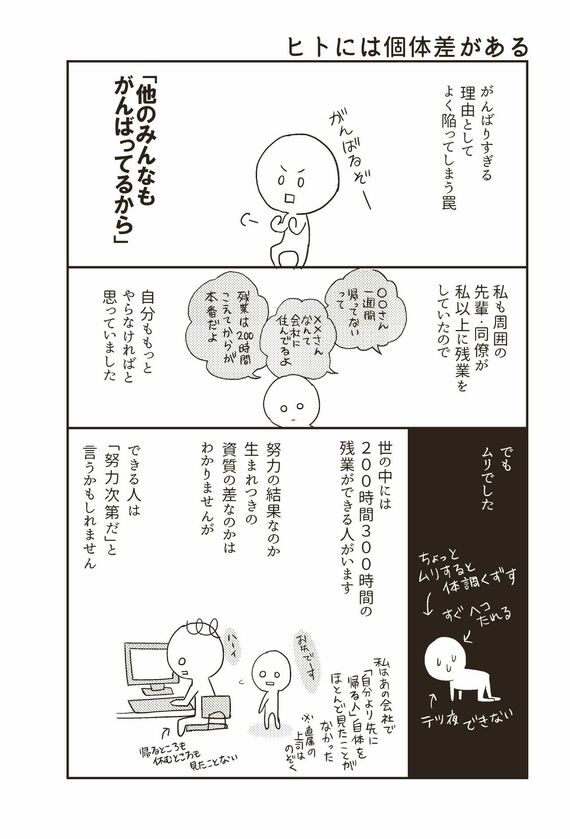 ヒトには個体差がある
がんばりすぎる
理由として
よく陥ってしまう罠
がんばるぞー
「他のみんなも
がんばってるから」
私も周囲の
先輩・同僚が
私以上に残業を
していたので
〇〇さん
一週間
帰ってない
って
××さん
なんて
会社に
住んでるよ
残業は200時間
こえてからが
本番だよ
自分ももっと
やらなければと
思っていました
でも
ムリでした
ちょっと
ムリすると
体調くずす
すぐヘコ
たれる
テツ夜できない
世の中には
200時間300時間の
残業ができる人がいます
努力の結果なのか
生まれつきの
資質の差なのかは
わかりませんが
できる人は
「努力次第だ」と
言うかもしれません
お先でーす
ハーイ
私はあの会社で
「自分より先に
帰る人」自体を
ほとんど見たことが
なかった
※直属の
上司は
のぞく
帰るところも
休むところも
見たことない